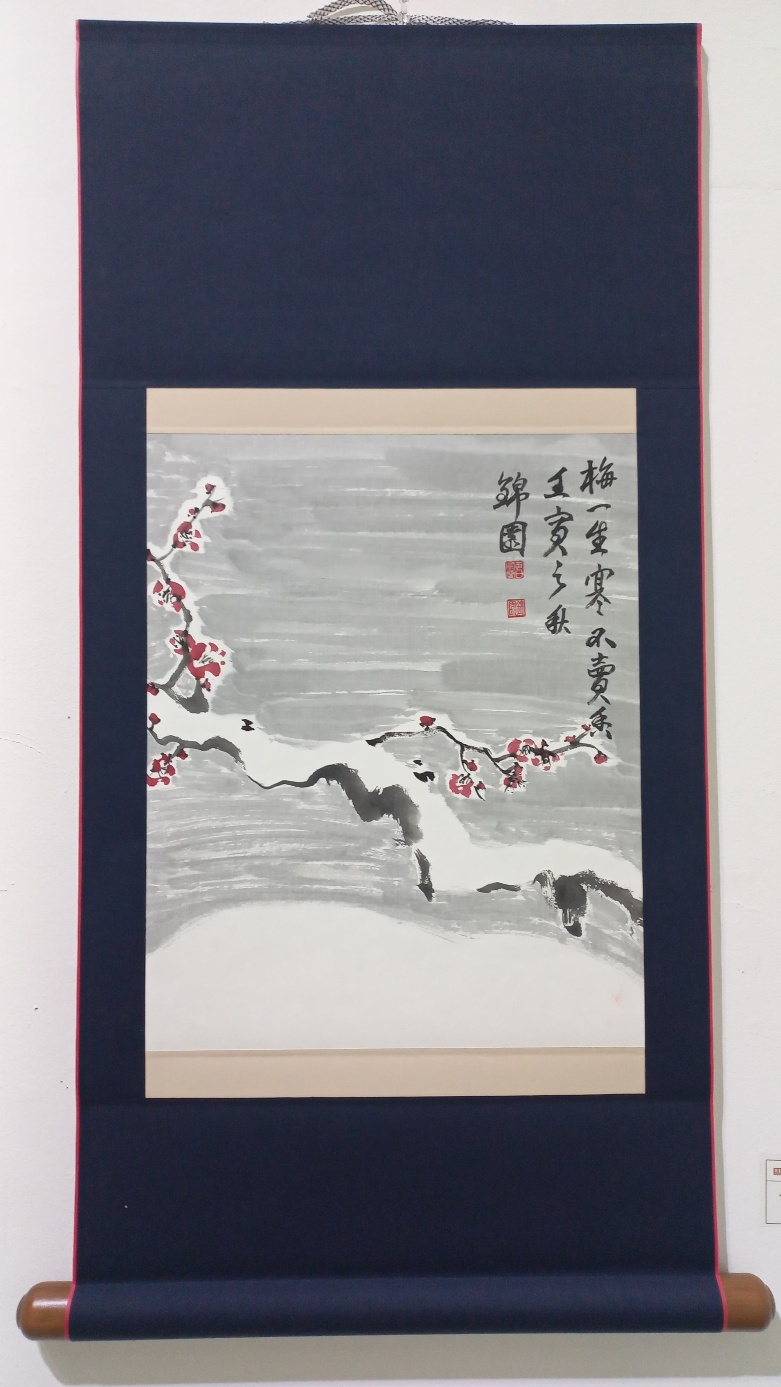 梅一生寒不賣香
壬寅之秋
錦園